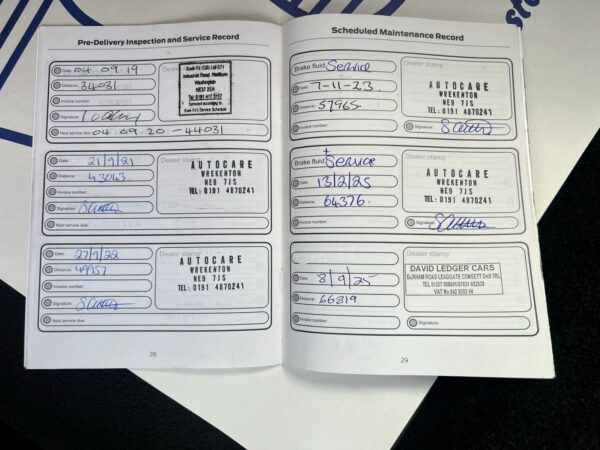 Pre-Delivery Inspection and Service Record
Date: 04.09.19
Distance: 34031
Invoice number:
Signature:
Next service due: 04.09.20 - 44031
Kwik Fit (GB) Ltd
Industrial Road, Hertburn
Washington
NE37 2SA
Tel: 0191 417
Serviced according to
Kwik Fit's Service Schedule
Date: 21/9/21
Distance: 43043.
Invoice number:
Signature:
Next service due:
Dealer stamp
AUTOCARE
WREKENTON
NE9 7JS
TEL: 0191 4870241
Date: 27/9/22
Distance: 49957
Invoice number:
Signature:
Next service due:
Dealer stamp
AUTOCARE
WREKENTON
NE9 7JS
TEL: 0191 4870241
28
Scheduled Maintenance Record
Brake fluid Service
Date: 7-11-23.
Distance: 57965.
Invoice number:
Dealer stamp
AUTOCARE
WREKENTON
NE9 7JS
TEL: 0191 4870241
Signature:
Brake fluid + Service
Date: 13/2/25
Distance: 64376.
Invoice number:
Dealer stamp
AUTOCARE
WREKENTON
NE9 7JS
TEL: 0191 4870241
Signature:
Date: 8/9/25
Distance: 66819
Invoice number:
Dealer stamp
DAVID LEDGER CARS
DURHAM ROAD LEADGATE CONSETT Dv8 7RL
VAT No 842 8593 94
Signature:
29